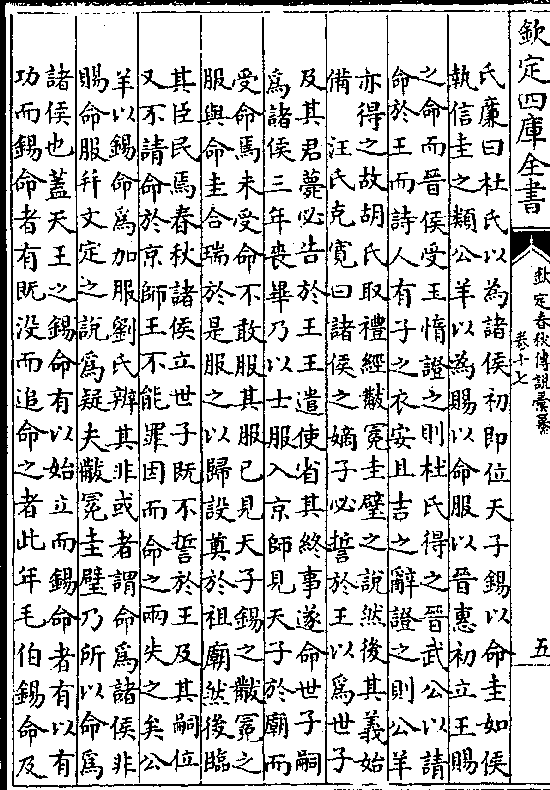 欽定四庫全書
欽定春秋傳說彙纂
卷十七
五
氏廉曰杜氏以為諸侯初即位天子錫以命圭如侯
執信圭之類公羊以為賜以命服以晉惠初立王賜
之命而晉侯受玉惰證之則杜氏得之晉武公以請
命於王而詩人有子之衣安且吉之辭證之則公羊
亦得之故胡氏取禮經黻冕圭璧之說然後其義始
備 汪氏克寛曰諸侯之嫡子必誓於王以為世子
及其君薨必告於王王遣使省其終事遂命世子嗣
為諸侯三年喪畢乃以士服入京師見天子於廟而
受命焉未受命不敢服其服已見天子錫之黻冕之
服與命圭合瑞於是服之以歸設奠於祖廟然後臨
其臣民焉春秋諸侯立世子既不誓於王及其嗣位
又不請命於京師王不能罪因而命之兩失之矣公
羊以錫命為加服劉氏辨其非或者謂命為諸侯非
賜命服幷文定之說為疑夫黻冕圭璧乃所以命為
諸侯也蓋天王之錫命有以始立而錫命者有以有
功而錫命者有既没而追命之者此年毛伯錫命及